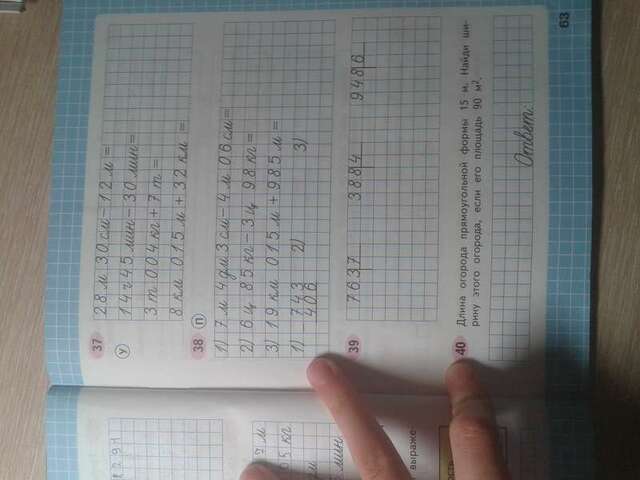 37
28 м 30 см – 12 м =
У 14 ч 45 мин – 30 мин =
3 т 004 кг + 7 т =
8 км 015 м + 32 км =
38 П
1) 7 м 4 дм 3 см – 4 м 06 см =
2) 6 ц 85 кг – 3 ц 98 кг =
3) 19 км 015 м + 985 м =
1) – 743 2) 3)
406
39
763 7 388 4 948 6
40 Длина огорода прямоугольной формы 15 м. Найди ши-
рину этого огорода, если его площадь 90 м².
Ответ:
63
7 м
05 кг
м
мин
выраже-